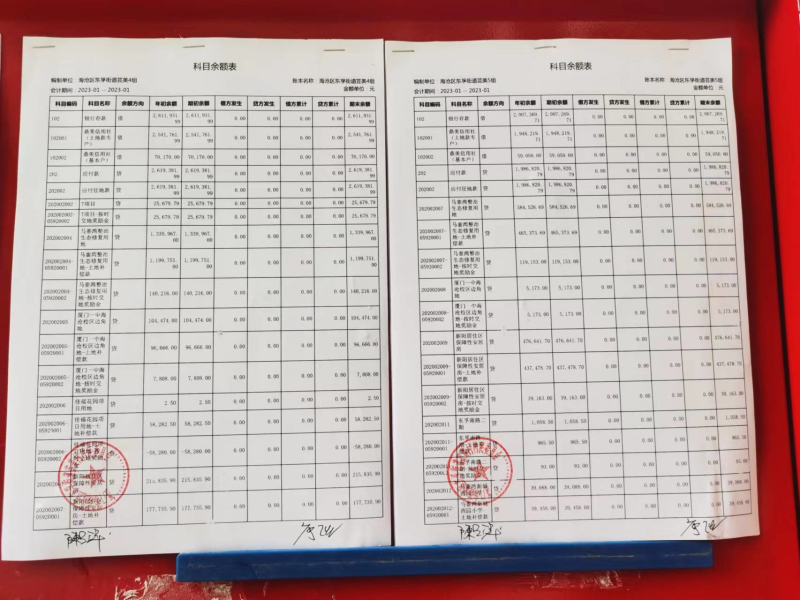 科目余额表
编制单位 海沧区东孚街道芸美4组 账本名称 海沧区东孚街道芸美4组
会计期间 2023-01 -- 2023-01 金额单位: 元
科目编码 科目名称 余额方向 年初余额 期初余额 借方发生 贷方发生 借方累计 贷方累计 期末余额
102 银行存款 借 2,611,931.99 2,611,931.99 0.00 0.00 0.00 0.00 2,611,931.99
102001 鼎美信用社(土地款专户) 借 2,541,761.99 2,541,761.99 0.00 0.00 0.00 0.00 2,541,761.99
102002 鼎美信用社(基本户) 借 70,170.00 70,170.00 0.00 0.00 0.00 0.00 70,170.00
202 应付款 贷 2,619,381.99 2,619,381.99 0.00 0.00 0.00 0.00 2,619,381.99
202002 应付征地款 贷 2,619,381.99 2,619,381.99 0.00 0.00 0.00 0.00 2,619,381.99
202002002 T项目 贷 25,679.79 25,679.79 0.00 0.00 0.00 0.00 25,679.79
202002002-05920002 T项目-按时交地奖励金 贷 25,679.79 25,679.79 0.00 0.00 0.00 0.00 25,679.79
202002004 马銮湾整治生态修复用地 贷 1,339,967.00 1,339,967.00 0.00 0.00 0.00 0.00 1,339,967.00
202002004-05920001 马銮湾整治生态修复用地-土地补偿款 贷 1,199,751.00 1,199,751.00 0.00 0.00 0.00 0.00 1,199,751.00
202002004-05920002 马銮湾整治生态修复用地-按时交地奖励金 贷 140,216.00 140,216.00 0.00 0.00 0.00 0.00 140,216.00
202002005 厦门一中海沧校区边角地 贷 104,474.00 104,474.00 0.00 0.00 0.00 0.00 104,474.00
202002005-05920001 厦门一中海沧校区边角地-土地补偿款 贷 96,666.00 96,666.00 0.00 0.00 0.00 0.00 96,666.00
202002005-05920002 厦门一中海沧校区边角地-按时交地奖励金 贷 7,808.00 7,808.00 0.00 0.00 0.00 0.00 7,808.00
202002006 佳福花园项目用地 贷 2.50 2.50 0.00 0.00 0.00 0.00 2.50
202002006-05920001 佳福花园项目用地-土地补偿款 贷 58,282.50 58,282.50 0.00 0.00 0.00 0.00 58,282.50
贷 -58,280.00 -58,280.00 0.00 0.00 0.00 0.00 -58,280.00
贷 215,835.90 215,835.90 0.00 0.00 0.00 0.00 215,835.90
202002007-05920001 贷 177,735.90 177,735.90 0.00 0.00 0.00 0.00 177,735.90
科目余额表
编制单位 海沧区东孚街道芸美5组 账本名称 海沧区东孚街道芸美5组
会计期间 2023-01 -- 2023-01 金额单位: 元
科目编码 科目名称 余额方向 年初余额 期初余额 借方发生 贷方发生 借方累计 贷方累计 期末余额
102 银行存款 借 2,007,269.71 2,007,269.71 0.00 0.00 0.00 0.00 2,007,269.71
102001 鼎美信用社(土地款专户) 借 1,948,219.71 1,948,219.71 0.00 0.00 0.00 0.00 1,948,219.71
102002 鼎美信用社(基本户) 借 59,050.00 59,050.00 0.00 0.00 0.00 0.00 59,050.00
202 应付款 贷 1,986,920.79 1,986,920.79 0.00 0.00 0.00 0.00 1,986,920.79
202002 应付征地款 贷 1,986,920.79 1,986,920.79 0.00 0.00 0.00 0.00 1,986,920.79
202002007 马銮湾整治生态修复用地 贷 584,526.69 584,526.69 0.00 0.00 0.00 0.00 584,526.69
202002007-05920001 马銮湾整治生态修复用地-土地补偿款 贷 465,373.69 465,373.69 0.00 0.00 0.00 0.00 465,373.69
202002007-05920002 马銮湾整治生态修复用地-按时交地奖励金 贷 119,153.00 119,153.00 0.00 0.00 0.00 0.00 119,153.00
202002008 厦门一中海沧校区边角地 贷 5,173.00 5,173.00 0.00 0.00 0.00 0.00 5,173.00
202002008-05920002 厦门一中海沧校区边角地-按时交地奖励金 贷 5,173.00 5,173.00 0.00 0.00 0.00 0.00 5,173.00
202002009 新阳居住区保障性安居房 贷 476,641.70 476,641.70 0.00 0.00 0.00 0.00 476,641.70
202002009-05920001 新阳居住区保障性安居房-土地补偿款 贷 437,478.70 437,478.70 0.00 0.00 0.00 0.00 437,478.70
202002009-05920002 新阳居住区保障性安居房-按时交地奖励金 贷 39,163.00 39,163.00 0.00 0.00 0.00 0.00 39,163.00
202002011 东孚南路二期 贷 1,058.50 1,058.50 0.00 0.00 0.00 0.00 1,058.50
202002011-05920001 贷 965.50 965.50 0.00 0.00 0.00 0.00 965.50
贷 93.00 93.00 0.00 0.00 0.00 0.00 93.00
202002012 贷 39,088.00 39,088.00 0.00 0.00 0.00 0.00
202002012-05920001 贷 0.00 0.00 0.00 0.00